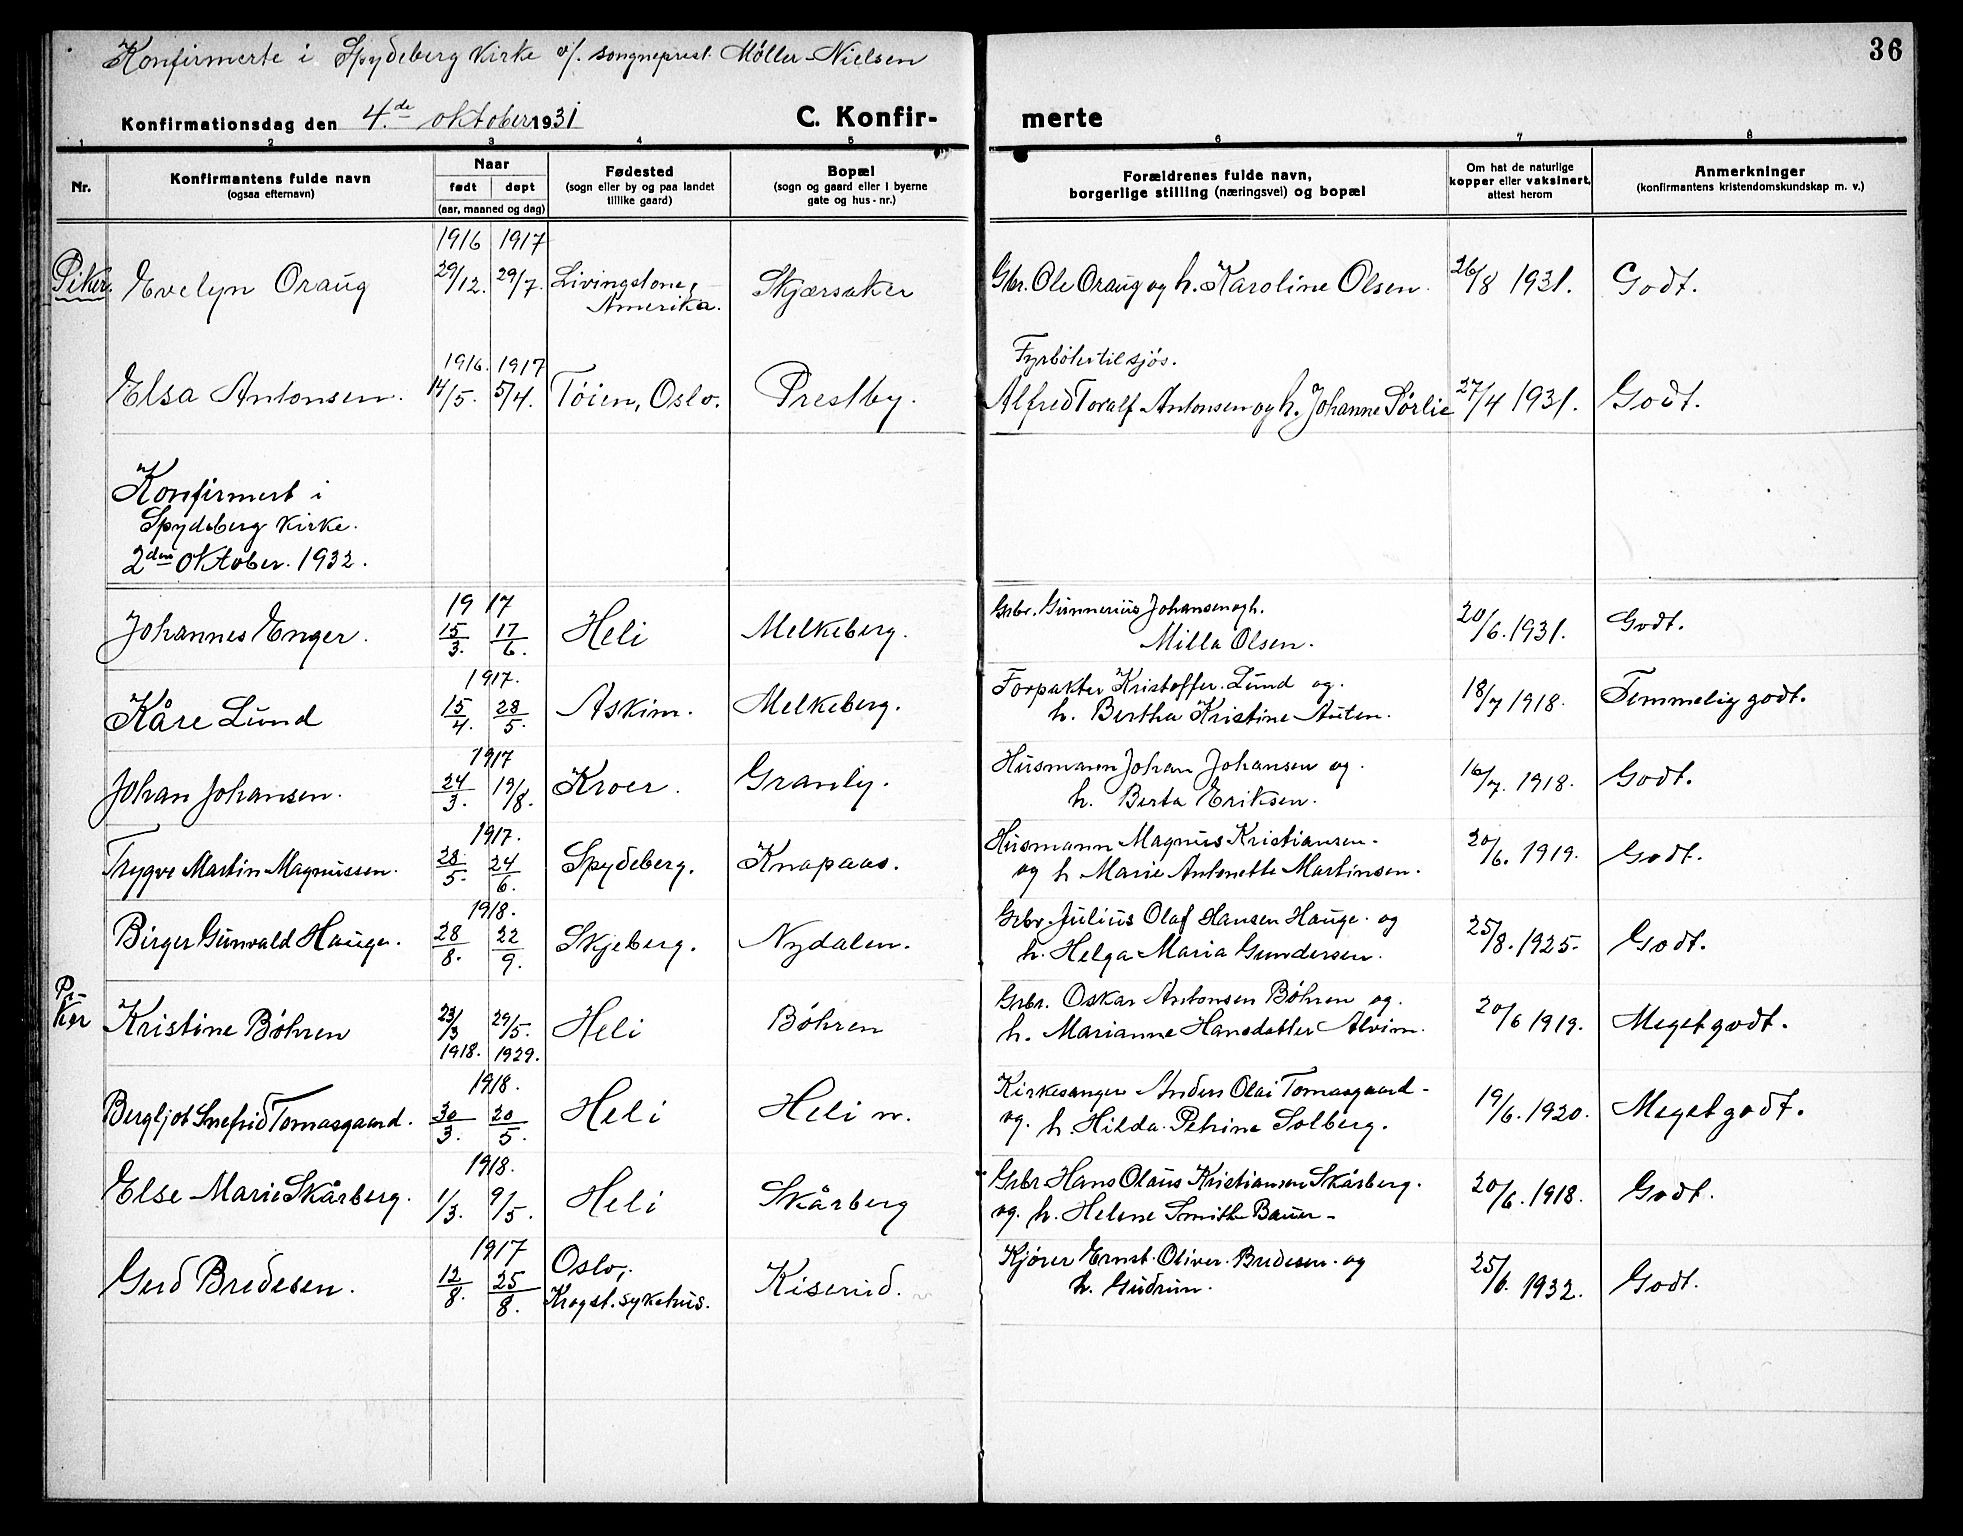 Konfirmerte i Spydeberg kirke v/. sogneprest Møller-Nielsen
36
Konfirmationsdag den 4.de oktober 1931
C. Konfir- merte
1 2 3 4 5 6 7 8
Nr.
Konfirmantens fulde navn
(ogsaa efternavn)
Naar
født døpt
(aar, maaned og dag)
Fødested
(sogn eller by og paa landet
tillike gaard)
Bopæl
(sogn og gaard eller i byerne
gate og hus-nr.)
Forældrenes fulde navn,
borgerlige stilling (næringsvei) og bopæl
Om hat de naturlige
kopper eller vaksinert,
attest herom
Anmerkninger
(konfirmantens kristendomskundskap m. v.)
1916 1917
Piker. Evelyn Oraug 29/12. 29/7. Livingstone, Skjærsaker Gbr. Ole Oraug og h. Karoline Olsen. 26/8 1931. Godt.
Amerika.
1916. 1917 Fyrbøter til sjøs.
Elsa Antonsen. 14/5. 5/4. Tøien, Oslo. Prestby. Alfred Toralf Antonsen og h. Johanne Sørlie 27/4 1931. Godt.
Konfirmert i
Spydeberg kirke.
2den oktober. 1932.
19 17 Grbr. Gunnerius Johansen og h.
Johannes Enger. 15/3. 17/6. Heli Melkeberg. Milla Olsen. 20/6. 1931. Godt.
1917. Forpakter Kristoffer. Lund og.
Kåre Lund 15/4. 28/5. Askim. Melkeberg. h. Bertha Kristine Auten. 18/7 1918. Temmelig godt.
1917 Husmann Johan Johansen og.
Johan Johansen. 24/3. 19/8. Kroer. Granly. h. Berta Eriksen. 16/7. 1918. Godt.
1917. Husmann Magnus Kristiansen.
Trygve Martin Magnussen. 28/5. 24/6. Spydeberg. Knapaas. og h Marie Antonette Martinsen. 20/6. 1919. Godt.
1918. Grbr Julius Olaf Hansen Hauge. og
Birger Gunvald Hauge. 28/8. 22/9. Skjeberg. Nydalen. h. Helga Maria Gundersen. 25/8. 1925. Godt.
Pi- Grbr. Oskar Antonsen Bøhren og.
ker Kristine Bøhren 23/3 29/5. Heli Bøhren h. Marianne Hansdatter Alvim. 20/6 1919. Meget godt.
1918. 1929.
1918. Kirkesanger Anders Olai Tomasgaard-
Bergljot Snefrid Tomasgaard. 30/3. 20/5. Heli Heli n. og. h. Hilda. Petrine Solberg. 19/6. 1920. Meget godt.
1918. Grbr Hans Olaus Kristiansen Skårberg.
Else Marie Skårberg. 1/3. 9/5. Heli Skårberg og. h. Helene Smith Bauer- 20/6. 1918. Godt.
1917 Oslo; Kjører Ernst. Oliver. Bredesen. og
Gerd Bredesen. 12/8. 25/8. Krogst. sykehus. Kiserud. h. Gudrun. 25/6. 1932. Godt.